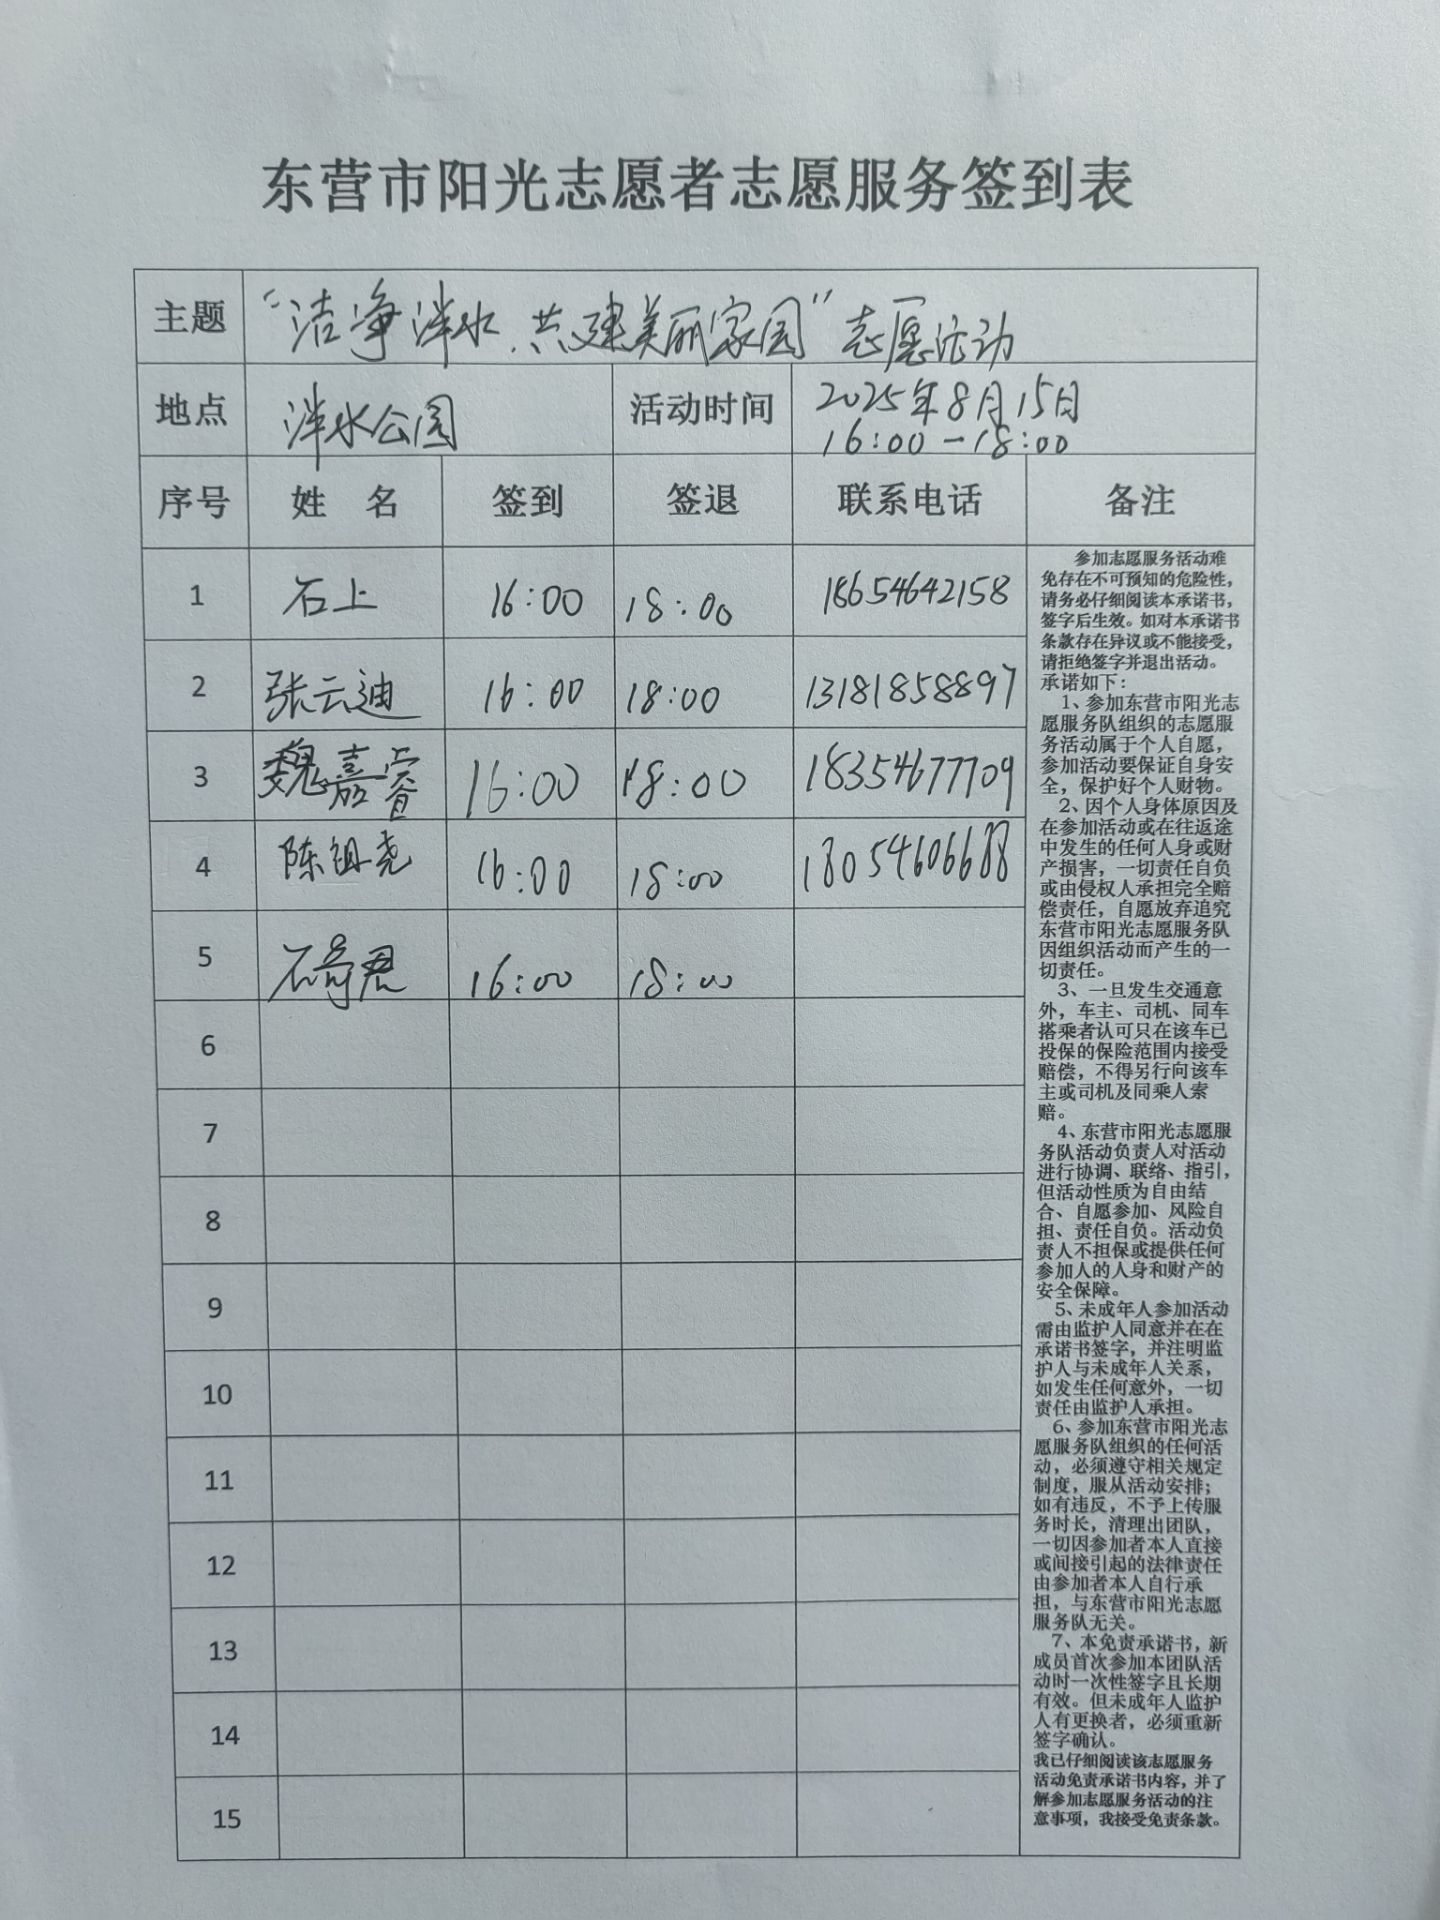 东营市阳光志愿者志愿服务签到表
主题 “洁净泮水、共建美丽家园”志愿活动
地点 泮水公园 活动时间 2025年8月15日
16:00-18:00
序号 姓 名 签到 签退 联系电话 备注
1 石上 16:00 18:00 18654642158
2 张云迪 16:00 18:00 13181858897
3 魏嘉睿 16:00 18:00 18354677709
4 陈祖尧 16:00 18:00 18054606688
5 16:00 18:00
6
7
8
9
10
11
12
13
14
15
参加志愿服务活动难
免存在不可预知的危险性，
请务必仔细阅读本承诺书，
签字后生效。如对本承诺书
条款存在异议或不能接受，
请拒绝签字并退出活动。
承诺如下：
1、参加东营市阳光志
愿服务队组织的志愿服
务活动属于个人自愿，
参加活动要保证自身安
全，保护好个人财物。
2、因个人身体原因及
在参加活动或在往返途
中发生的任何人身或财
产损害，一切责任自负
或由侵权人承担完全赔
偿责任，自愿放弃追究
东营市阳光志愿服务队
因组织活动而产生的一
切责任。
3、一旦发生交通意
外，车主、司机、同车
搭乘者认可只在该车已
投保的保险范围内接受
赔偿，不得另行向该车
主或司机及同乘人索
赔。
4、东营市阳光志愿服
务队活动负责人对活动
进行协调、联络、指引，
但活动性质为自由结
合、自愿参加、风险自
担、责任自负。活动负
责人不担保或提供任何
参加人的人身和财产的
安全保障。
5、未成年人参加活动
需由监护人同意并在在
承诺书签字，并注明监
护人与未成年人关系，
如发生任何意外，一切
责任由监护人承担。
6、参加东营市阳光志
愿服务队组织的任何活
动，必须遵守相关规定
制度，服从活动安排；
如有违反，不予上传服
务时长，清理出团队，
一切因参加者本人直接
或间接引起的法律责任
由参加者本人自行承
担，与东营市阳光志愿
服务队无关。
7、本免责承诺书，新
成员首次参加本团队活
动时一次性签字且长期
有效。但未成年人监护
人有更换者，必须重新
签字确认。
我已仔细阅读该志愿服务
活动免责承诺书内容，并了
解参加志愿服务活动的注
意事项，我接受免责条款。